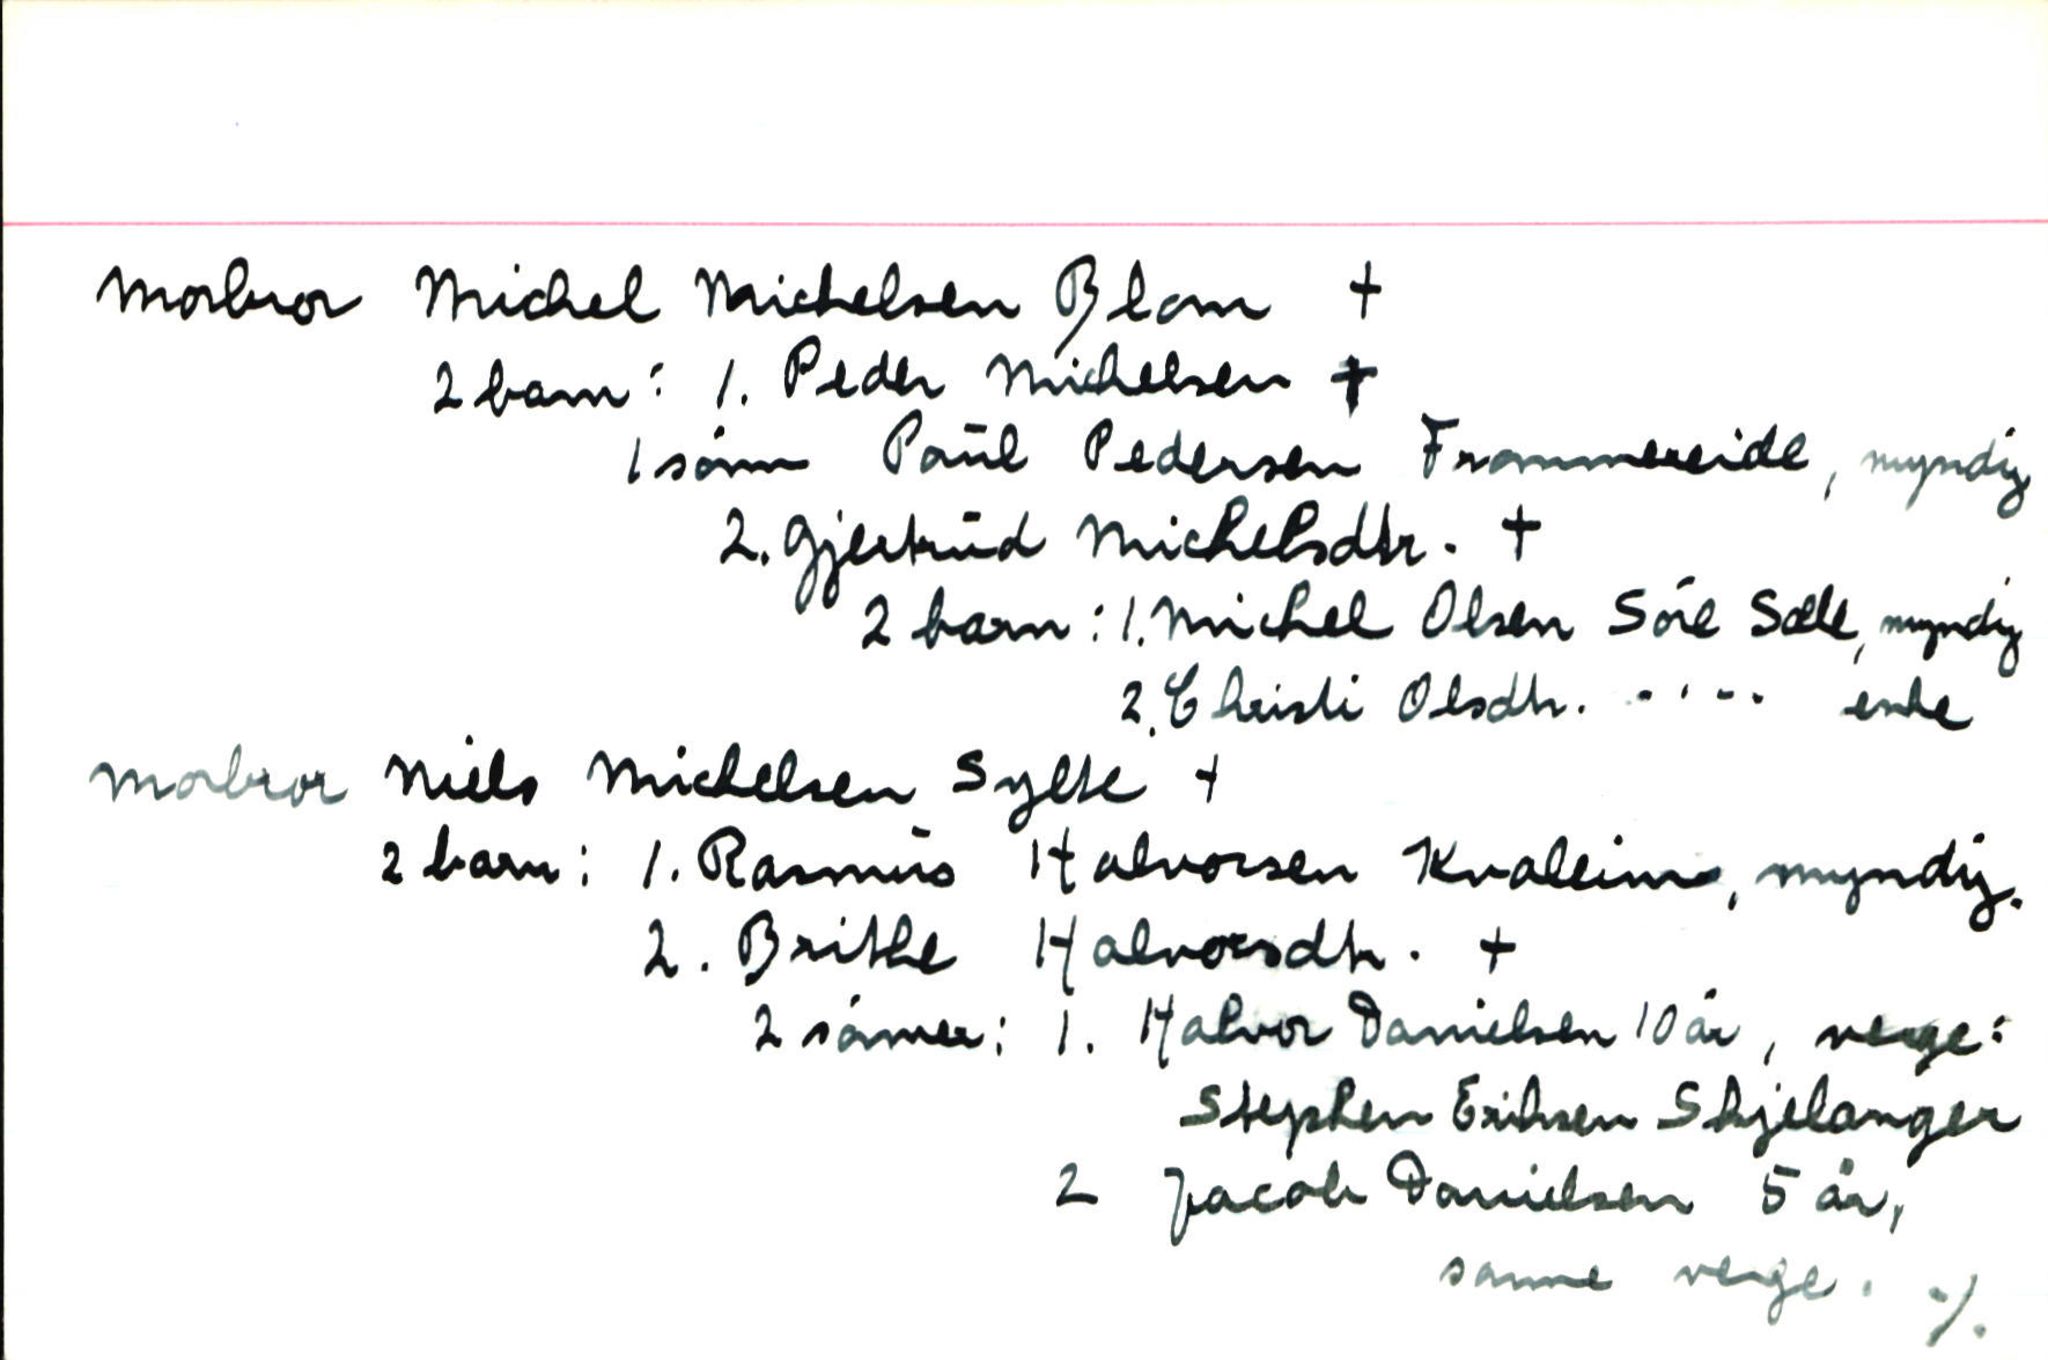 Morbror Michel Michelsen Blom +
2 barn: 1. Peder Michelsen +
1 sónn Paūl Pedersen Frommereide, myndig
2. Gjertrūd Michelsdtr. +
2 barn: 1. Michel Olsen Sóre Sæle, myndig
2. Christi Olsdtr. - ' - - enke
Morbror Niels Michelsen Sylte +
2 barn: 1. Rasmūs Halvorsen Kvaleim, myndig.
2. Brithe Halvorsdtr. +
2 sónner: 1. Halvor Danielsen 10 år, verge:
Stephen Erichsen Skjelanger
2 Jacob Danielsen 5 år,
samme verge. -/.